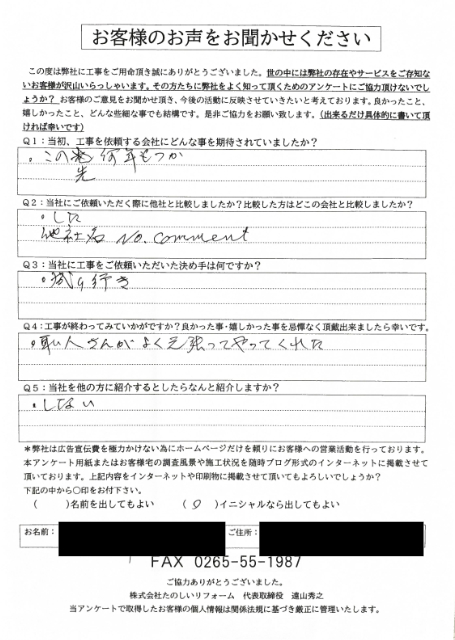 お客様のお声をお聞かせください
この度は弊社に工事をご用命頂き誠にありがとうございました。世の中には弊社の存在やサービスをご存知ない
お客様が沢山いらっしゃいます。その方たちに弊社をよく知って頂くためのアンケートにご協力頂けないでし
ょうか？ お客様のご意見をお聞かせ頂き、今後の活動に反映させていきたいと考えております。良かったこと、
嬉しかったこと、どんな些細な事でも結構です。是非ご協力をお願い致します。（出来るだけ具体的に書いて頂
ければ幸いです）
Q1：当初、工事を依頼する会社にどんな事を期待されていましたか？
・この 何年もつか
先
Q2：当社にご依頼いただく際に他社と比較しましたか？比較した方はどこの会社と比較しましたか？
・した
他社名 No. comment
Q3：当社に工事をご依頼いただいた決め手は何ですか？
行き
Q4：工事が終わってみていかがですか？良かった事・嬉しかった事を忌憚なく頂戴出来ましたら幸いです。
・職人さんがよく頑張ってやってくれた
Q5：当社を他の方に紹介するとしたらなんと紹介しますか？
・しない
＊弊社は広告宣伝費を極力かけない為にホームページだけを頼りにお客様への営業活動を行っております。
本アンケート用紙またはお客様宅の調査風景や施工状況を随時ブログ形式のインターネットに掲載させて
頂いております。上記内容をインターネットや印刷物に掲載させて頂いてもよろしいでしょうか？
下記の中から〇印をお付下さい。
（　）名前を出してもよい　（〇）イニシャルなら出してもよい
お名前：　ご住所：
FAX 0265-55-1987
ご協力ありがとうございました。
株式会社たのしいリフォーム　代表取締役　遠山秀之
当アンケートで取得したお客様の個人情報は関係法規に基づき厳正に管理いたします。